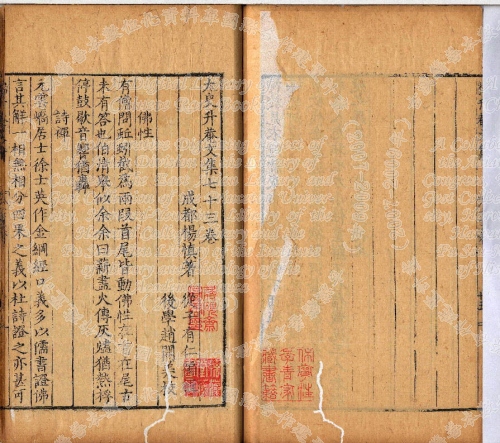 太史升菴文集七十三卷
成都楊慎著
從子有仁
後學趙開美校
佛性
有僧問蚯蚓截爲兩段首尾皆動佛性在首在尾古
未有答也伯清舉似余余曰薪盡火傳灰燼猶熱桴
停鼓歇音響猶轟
詩禪
元雲嶠居士徐士英作金綱經口義多以儒書證佛
言其解一相無相分四果之義以杜詩證之亦甚可